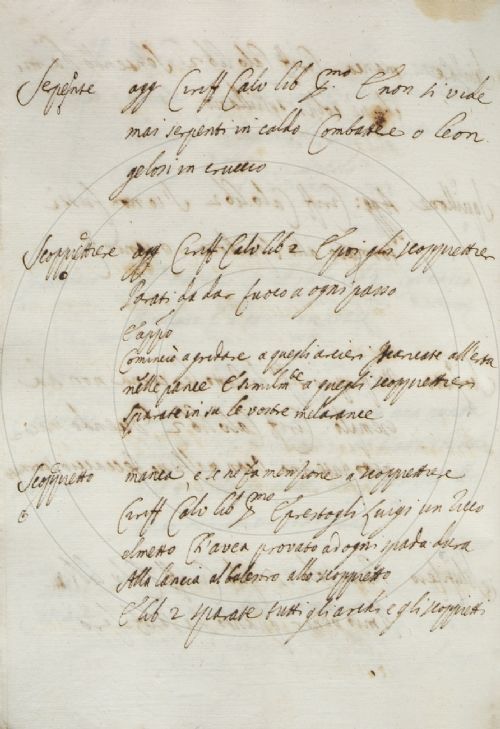 Serpente agg Ciriff Calv lib pmo E non si vide
mai serpenti in caldo Combattere o leon
gelosi in cruccio
Scoppiettiere agg Ciriff Calv lib 2 E poi gli scoppiettier
parati da dar fuoco a ogni passo
E appo
Cominciò a gridare a quegli arcieri scaricate all'erta
nelle pance E similmte a quegli scoppiettieri
sparate in su le vostre melarance
Scoppietto manca, e se ne fa menzione a scoppiettiere
Ciriff Calv lib pmo E prestogli Luigi un ricco
elmetto Ch'avea provato ad ogni spada dura
Alla lancia al balestro allo scoppietto
E lib 2 sparate tutti gli archi e gli scoppietti